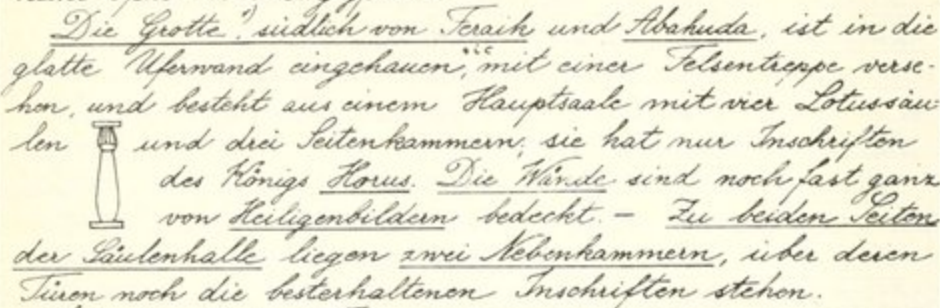 Die Grotte ²) südlich von Feraik und Abahuda, ist in die
glatte Uferwand eingehauen, mit einer Felsentreppe verse-
hen, und besteht aus einem Hauptsaale mit vier Lotussäu-
len und drei Seitenkammern; sie hat nur Inschriften
des Königs Horus. Die Wände sind noch fast ganz
von Heiligenbildern bedeckt. – Zu beiden Seiten
der Säulenhalle liegen zwei Nebenkammern, über deren
Türen noch die besterhaltenen Inschriften stehen.